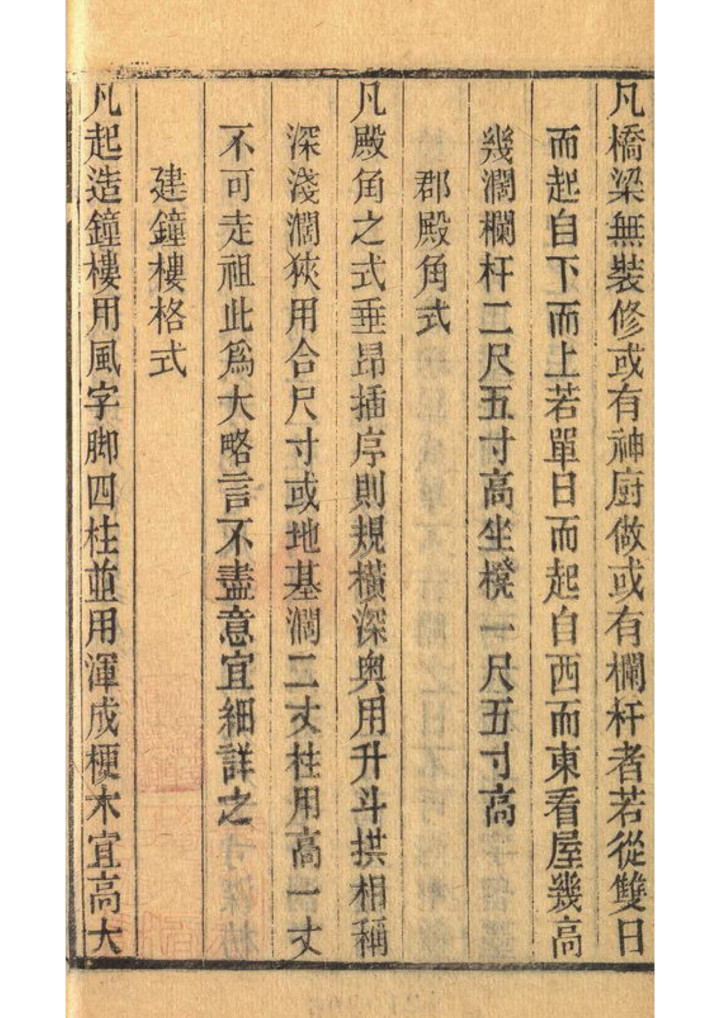 凡橋梁無裝修或有神厨做或有欄杆者若從雙日
而起自下而上若單日而起自西而東看屋幾高
幾濶欄杆二尺五寸高坐櫈一尺五寸高
郡殿角式
凡殿角之式垂昂插序則規橫深奥用升斗拱相稱
深淺濶狹用合尺寸或地基濶二丈柱用高一丈
不可走祖此爲大略言不盡意宜細詳之
建鐘樓格式
凡起造鐘樓用風字脚四柱並用渾成梗木宜高大